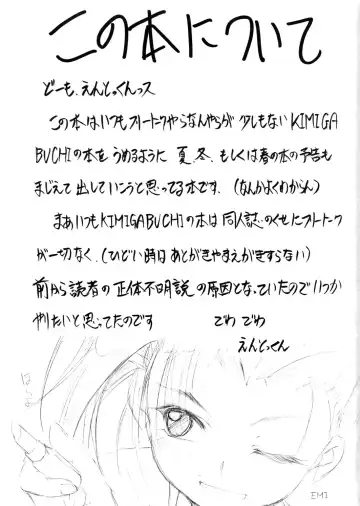 この本について
どーも、えんどっくんっス
この本はいつもフリートークやらなんやらが少しもないKIMIGA
BUCHIの本をうめるように夏、冬、もしくは春の本の予告も
まじえて出していこうと思ってる本です。(なんかよくわからん)
まあいつもKIMIGABUCHIの本は同人誌のくせにフリートーク
が一切なく、(ひどい時はあとがきやまえがきすらない)
前から読者の正体不明説の原因となっていたのでいつか
やりたいと思ってたのです でわ でわ
えんどっくん
EMI